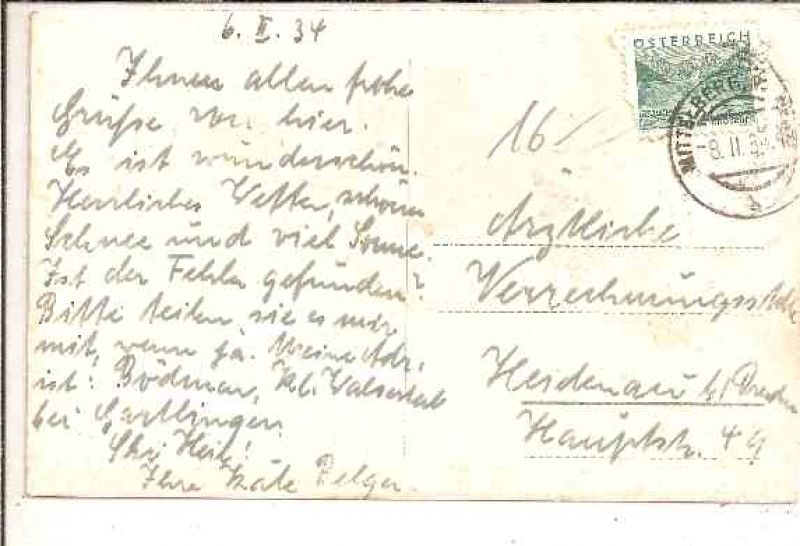 6. II. 34
Ihnen allen frohe
Grüße von hier.
Es ist wunderschön.
Herrliches Wetter, schöner
Schnee und viel Sonne.
Ist der Fehler gefunden?
Bitte teilen sie es mir
mit, wenn ja. Meine Adr.
ist: Bödmen, Kl. Walsertal
bei
Ski Heil!
Ihre Käte
ÖSTERREICH
MITTELBERG
8. II. 34
16
Ärztliche
Verrechnungsstelle
Heidenau b/ Dresden
Hauptstr. 49